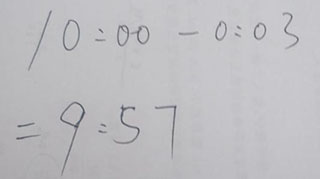 10:00 - 0:03
= 9:57